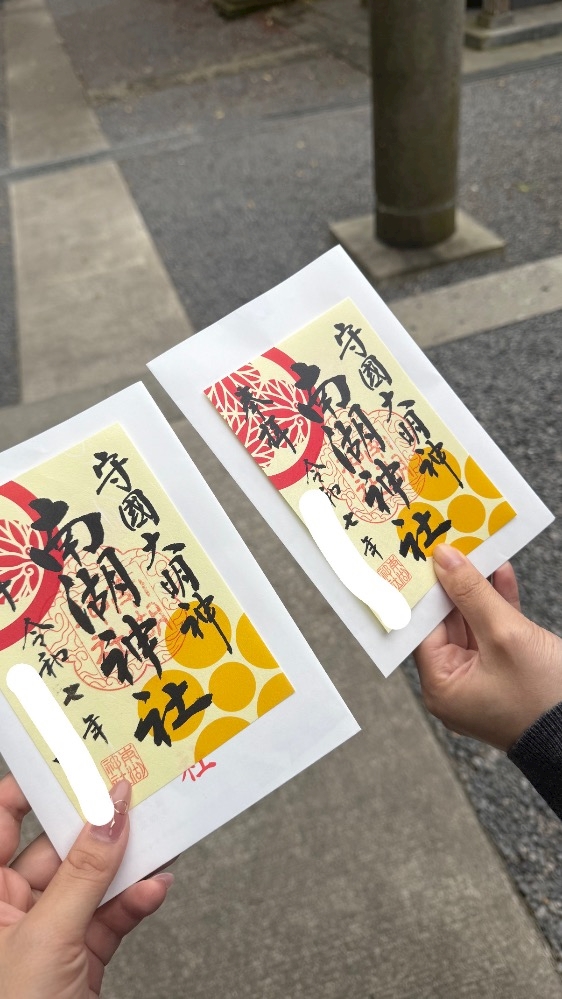 守國大明神
南湖神社
令和七年
社
守國大明神
南湖神社
奉拝
令和七年